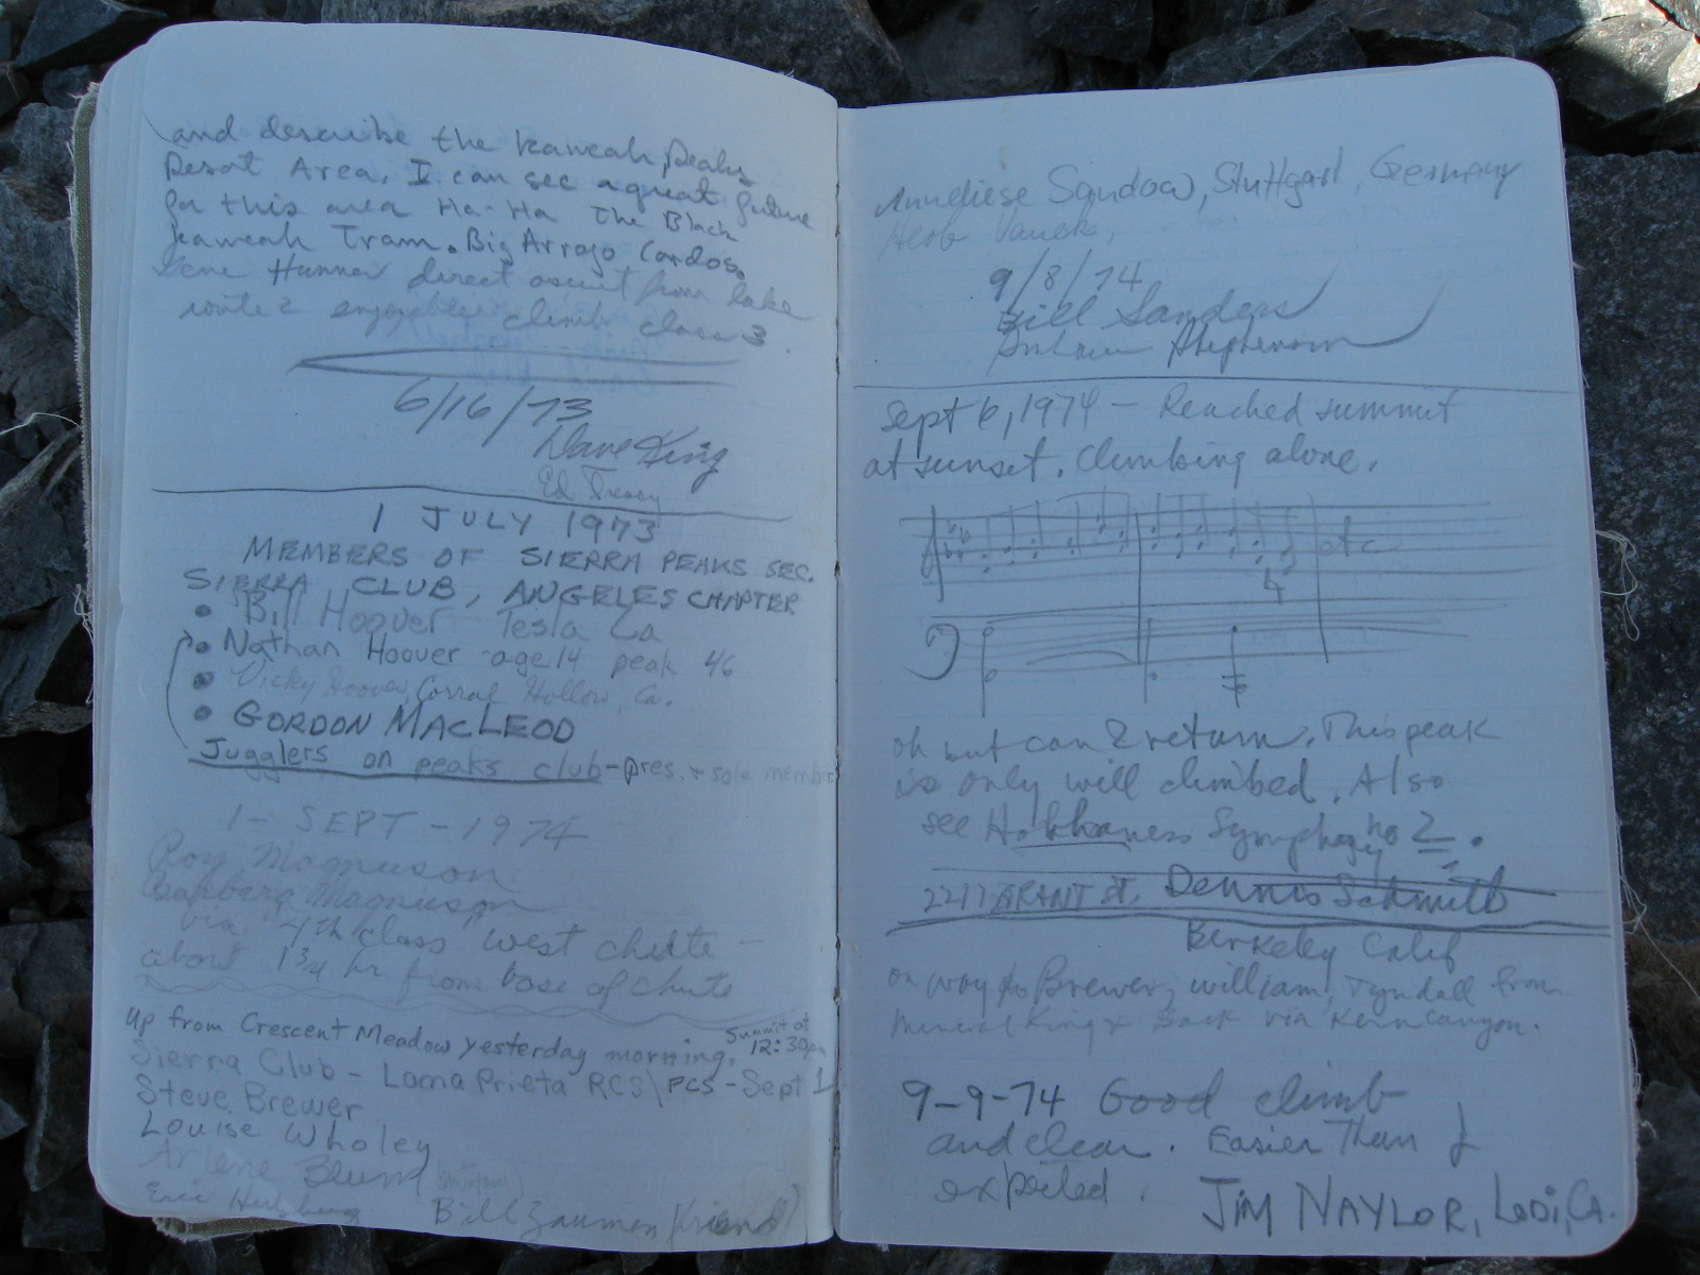 and describe the Kaweah Peaks
Resort Area. I can see a great future
for this area Ha-Ha The Black
Kaweah Tram. Big Arroyo Condos.
Gene direct ascent from lake
route 2 enjoyable climb class 3.
6/16/73
Dave King
Ed
1 JULY 1973
MEMBERS OF SIERRA PEAKS SEC.
SIERRA CLUB, ANGELES CHAPTER
• Bill Hoover Tesla Ca
• Nathan Hoover - age 14 peak 46
• Vicky Hoover, Corral Hollow, Ca.
• GORDON MACLEOD
Jugglers on peaks club - pres. + sole member
1 - SEPT - 1974
Roy Magnuson
Barbara Magnuson
via "4th class" west chute -
about 1 3/4 hr from base of chute
Up from Crescent Meadow yesterday morning. Summit at
12:30pm
Sierra Club - Loma Prieta RCS\PCS - Sept 1
Steve Brewer
Louise Wholey
Arlene Blum
Eric Bill Zaumen (friend)
Anneliese Sandow, Stuttgart, Germany
Herb
9/8/74
Bill Sanders
Stephenson
Sept 6, 1974 - Reached summit
at sunset. Climbing alone.
etc
oh but can I return. This peak
is only will climbed. Also
see Hohhaness Symphony no 2.
2217 GRANT St. Dennis Schmitt
Berkeley Calif
on way to Brewer, william, Tyndall from
Mineral King & Back via Kern Canyon.
9-9-74 Good climb
and clear. Easier Than I
expected.
JIM NAYLOR, LODI, CA.